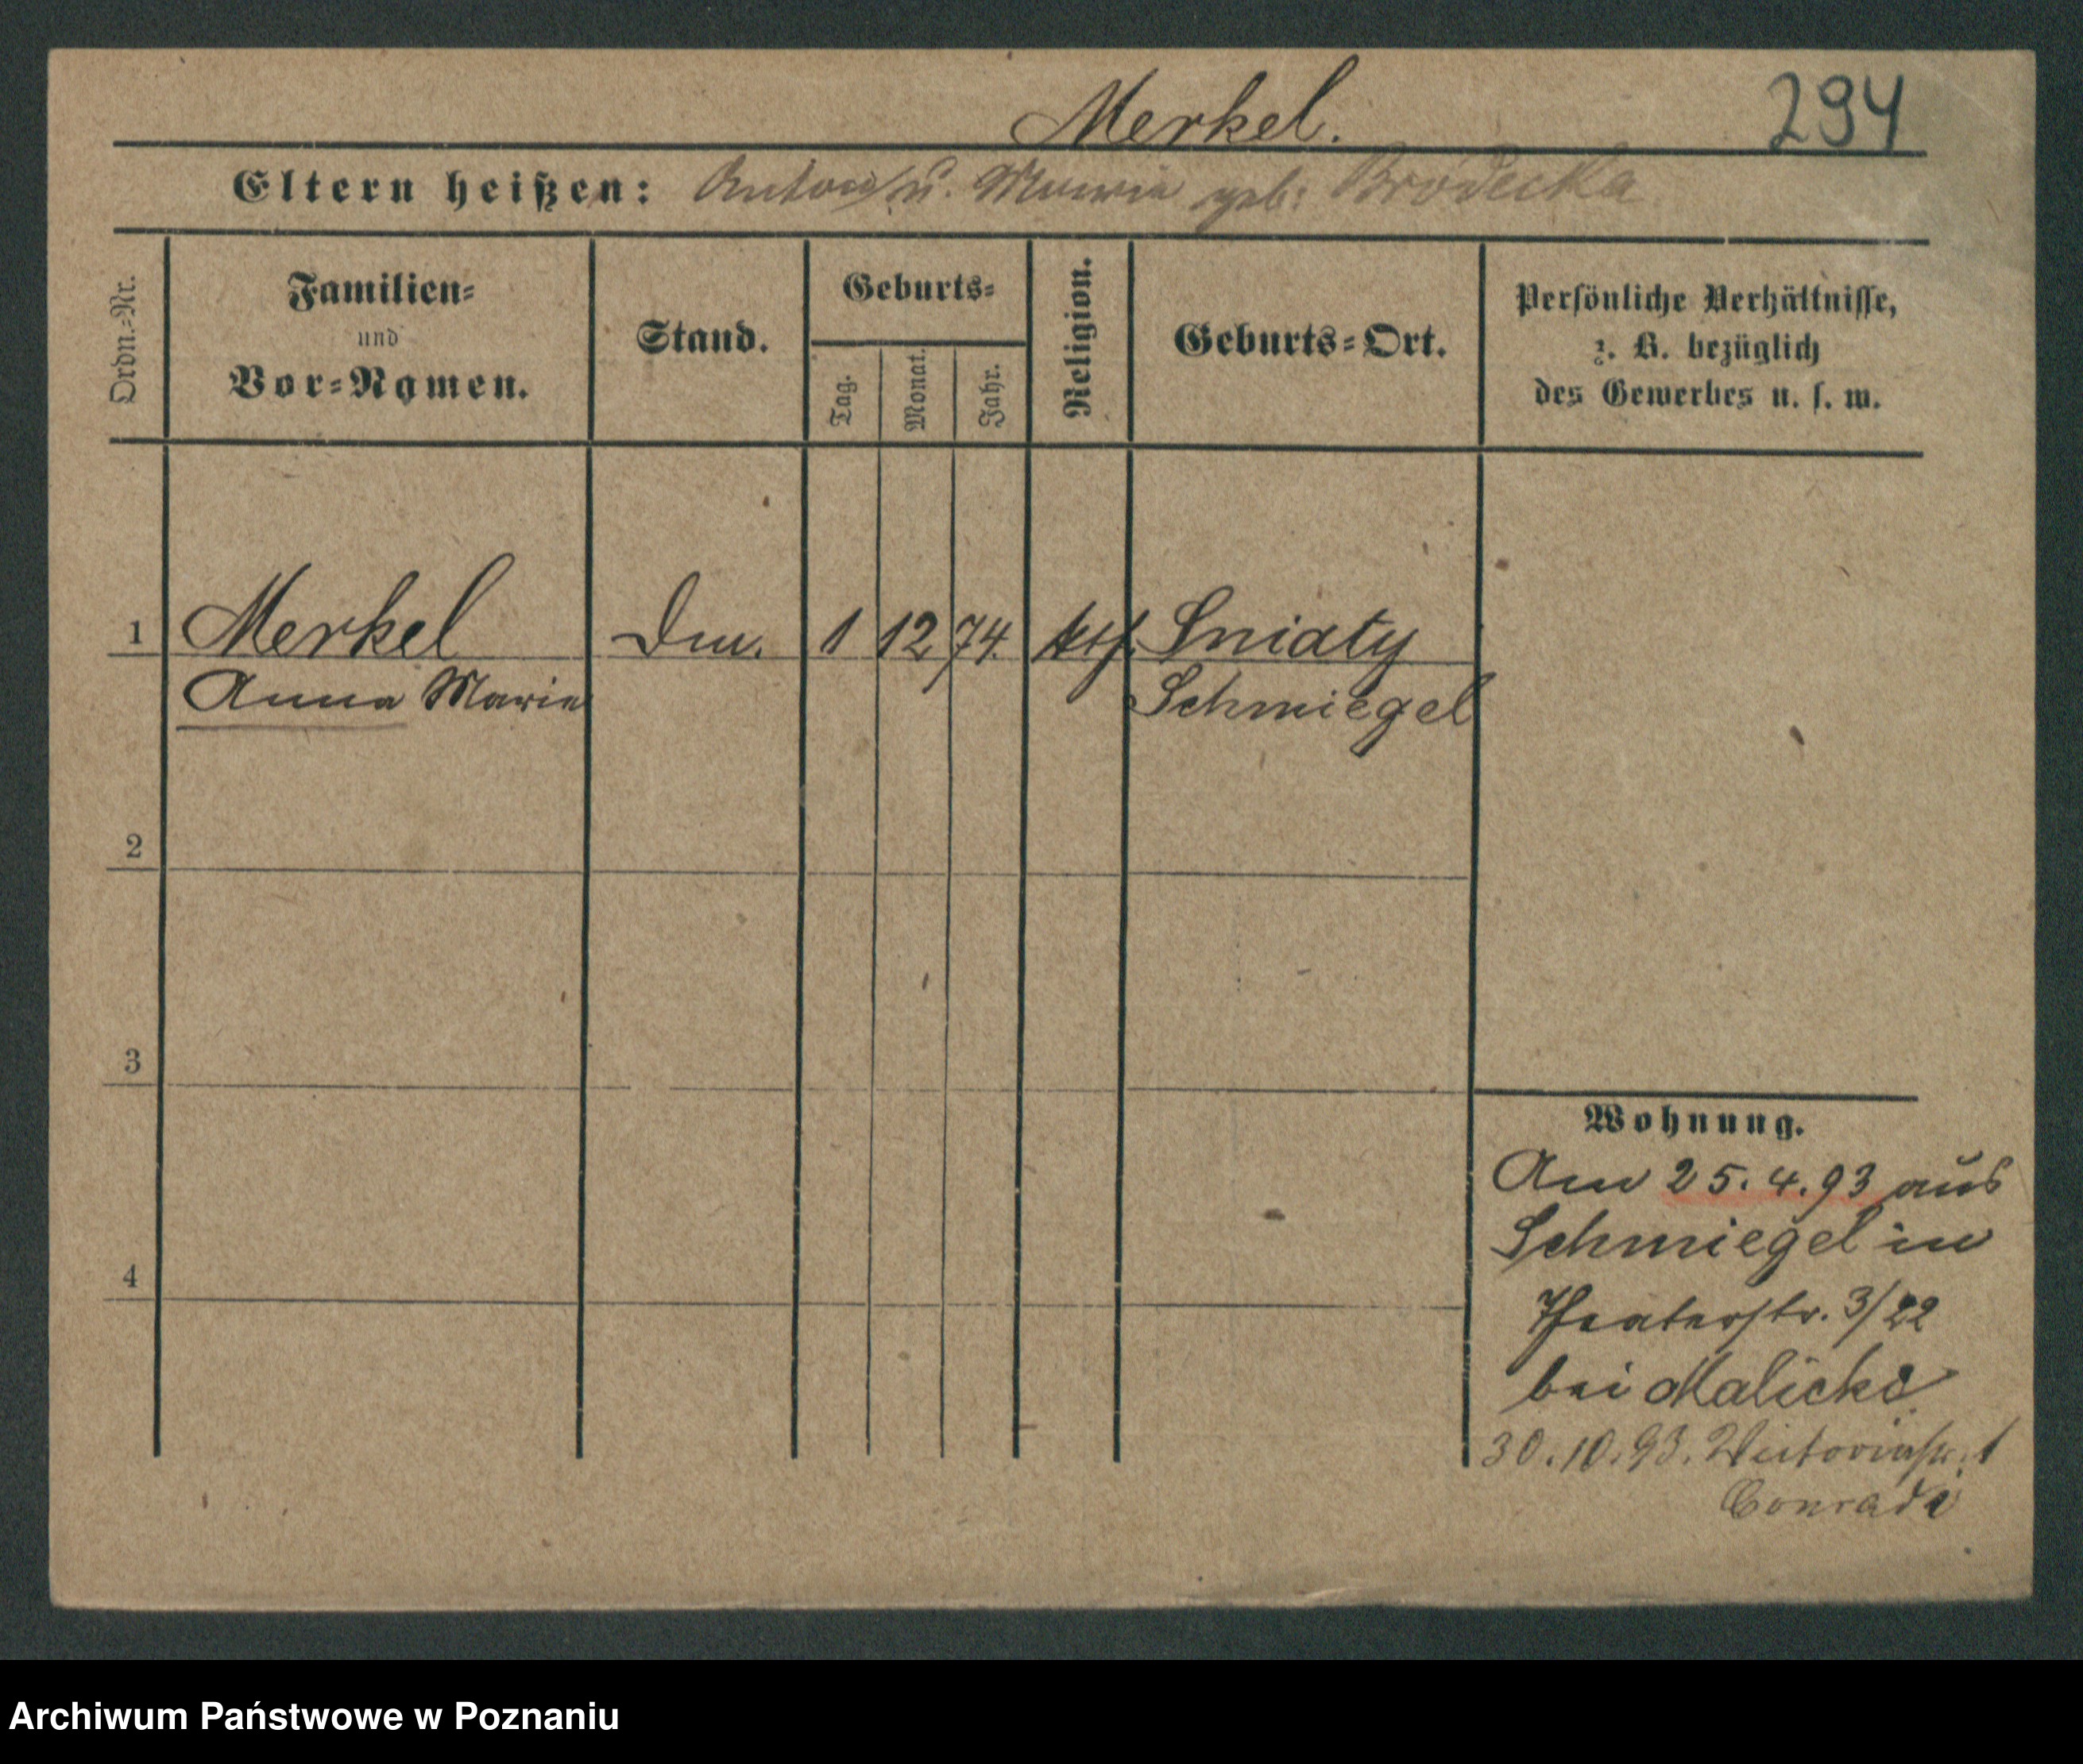 Merkel. 294
Eltern heißen: Anton u. Maria geb: Brodecka
Ordn.=Nr.
Familien=
und
Vor=Namen.
Stand.
Geburts=
Tag.
Monat.
Jahr.
Religion.
Geburts=Ort.
Persönliche Verhältnisse,
z. B. bezüglich
des Gewerbes u. s. w.
1 Merkel 1 12 74. kth. Sniaty
Anna Maria Schmiegel
2
3
4
Wohnung.
Am 25.4.93 aus
Schmiegel in
Theaterstr. 3/22
bei Malicki
30.10.93. Victoriastr. 1
Conradi
Archiwum Państwowe w Poznaniu